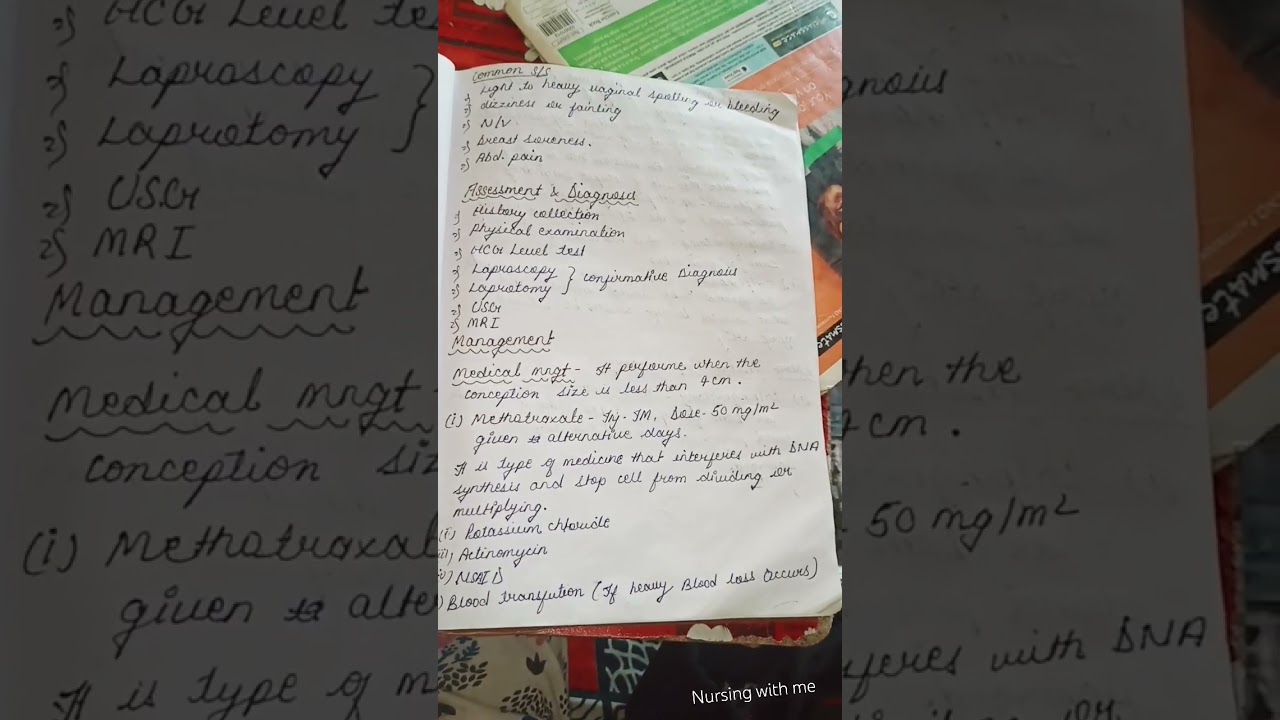 Common S/S
Light to heavy vaginal spotting or bleeding
dizziness or fainting
N/V
breast soreness.
Abd. pain
Assessment & Diagnosis
History collection
Physical examination
HCG Level test
Laproscopy
Laprotomy } confirmative Diagnosis
USG
MRI
Management
Medical mngt - It performe when the
conception size is less than 4 cm.
(i) Methotraxate - Inj. IM, Dose - 50 mg/m²
given alternative days.
It is type of medicine that interferes with DNA
synthesis and stop cell from dividing or
multiplying.
(ii) Potassium chloride
iii) Actinomycin
iv) NSAID
) Blood transfution (If heavy Blood loss Occurs)
Nursing with me